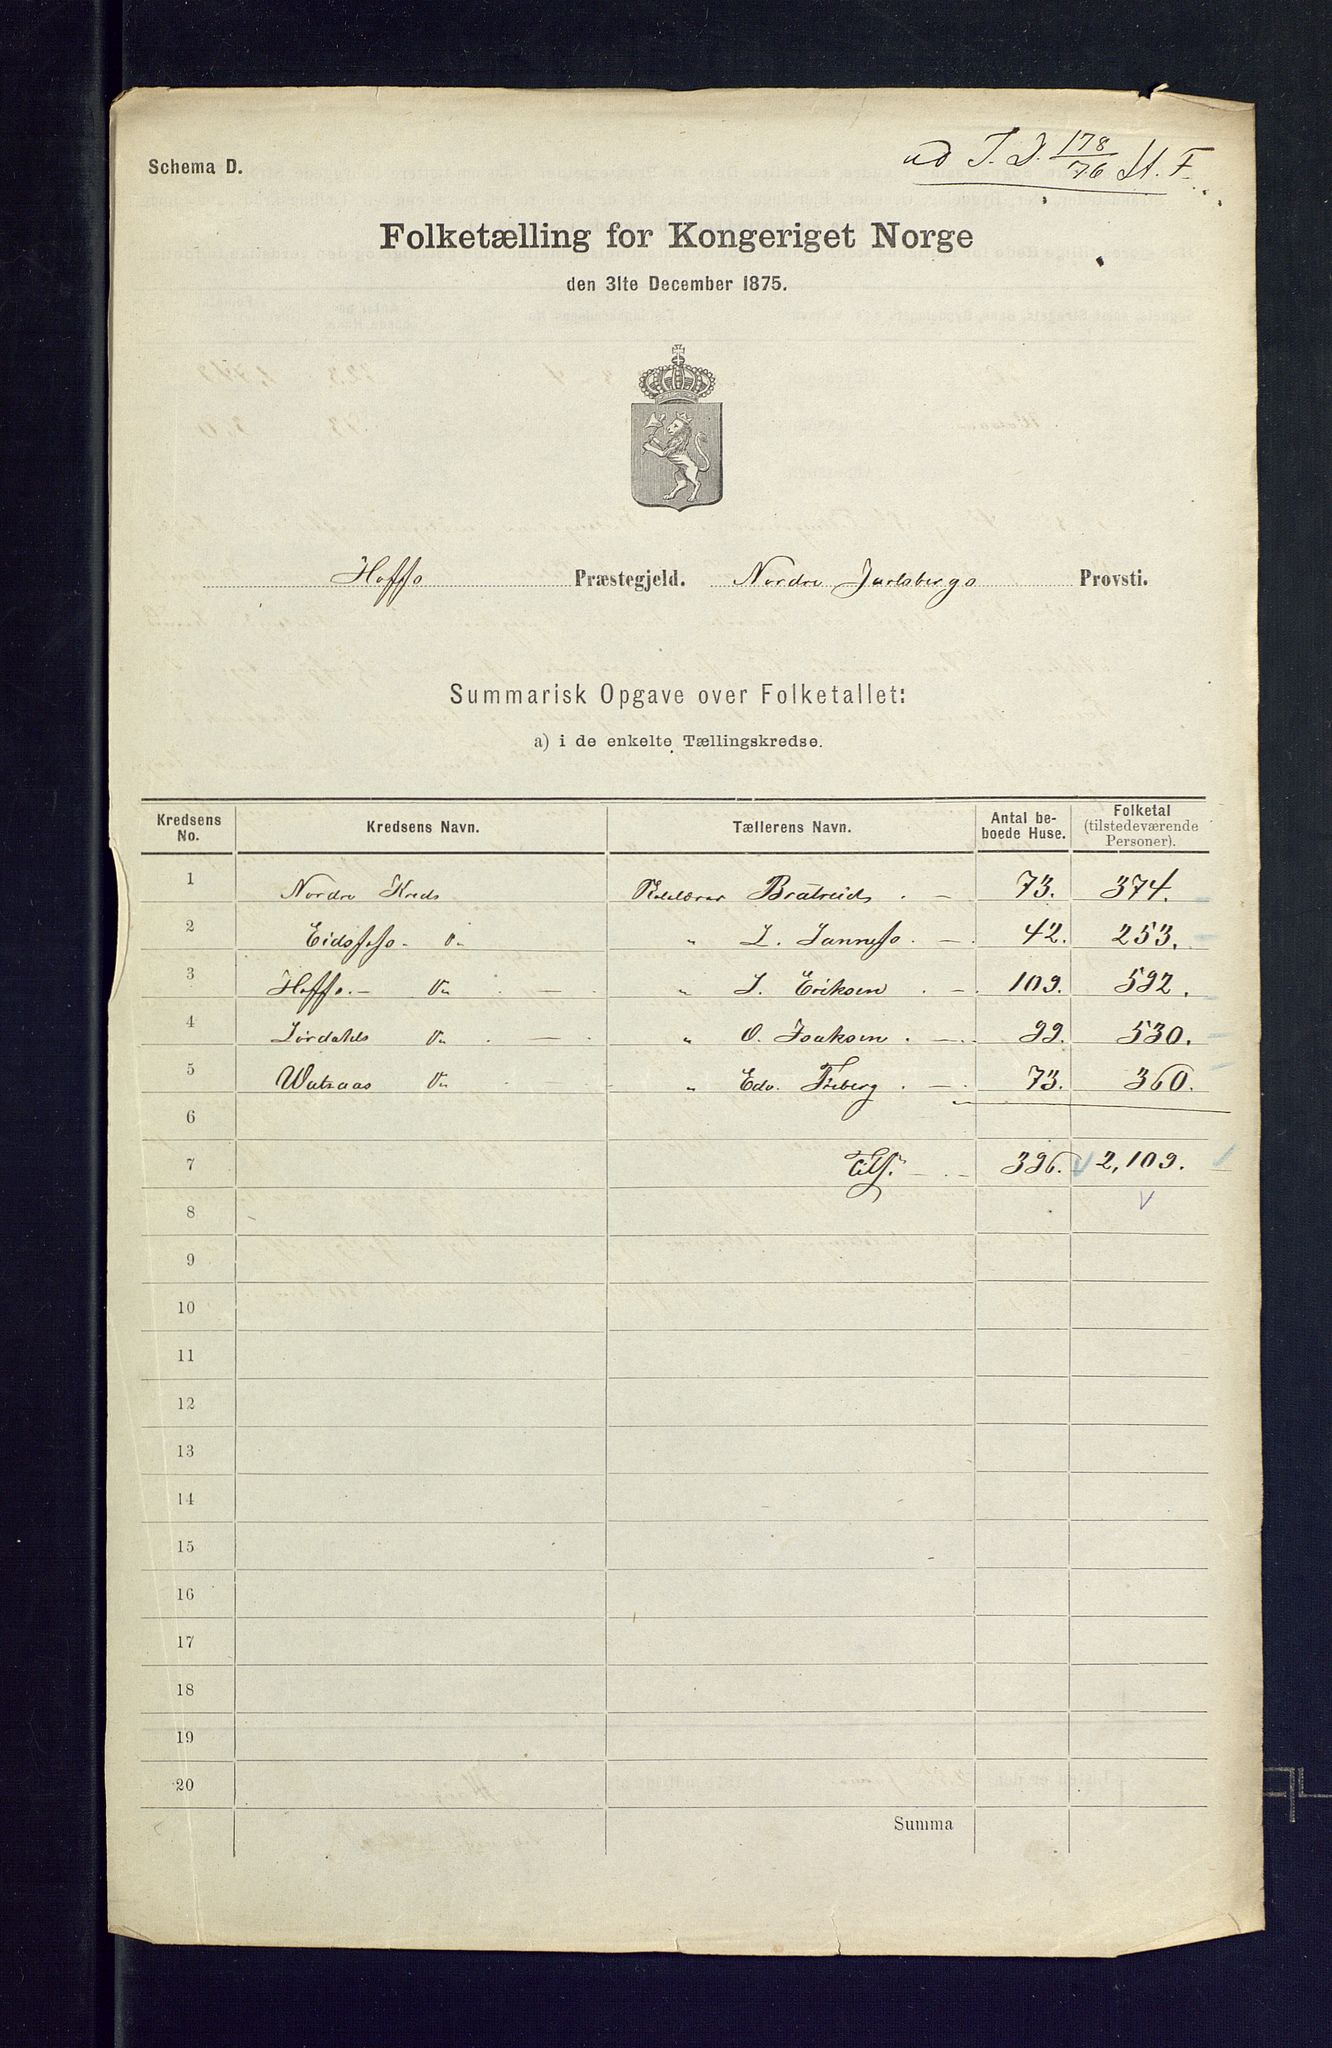 ad J. D. 178/76 St. F.
Schema D.
Folketælling for Kongeriget Norge
den 31te December 1875.
Hoffs Præstegjeld. Nordre Jarlsbergs Provsti.
Summarisk Opgave over Folketallet:
a) i de enkelte Tællingskredse.
Kredsens No. Kredsens Navn. Tællerens Navn. Antal beboede Huse. Folketal (tilstedeværende Personer).
1 Nordre Kreds 73. 374.
2 Eidsfos " " 42. 253.
3 Hoffs " " J. Eriksen 109. 592.
4 " " O. Isaksen 99. 530.
5 " " Edv. Friberg 73. 360.
6
7 Tils. 396. 2,109.
8
9
10
11
12
13
14
15
16
17
18
19
20
Summa